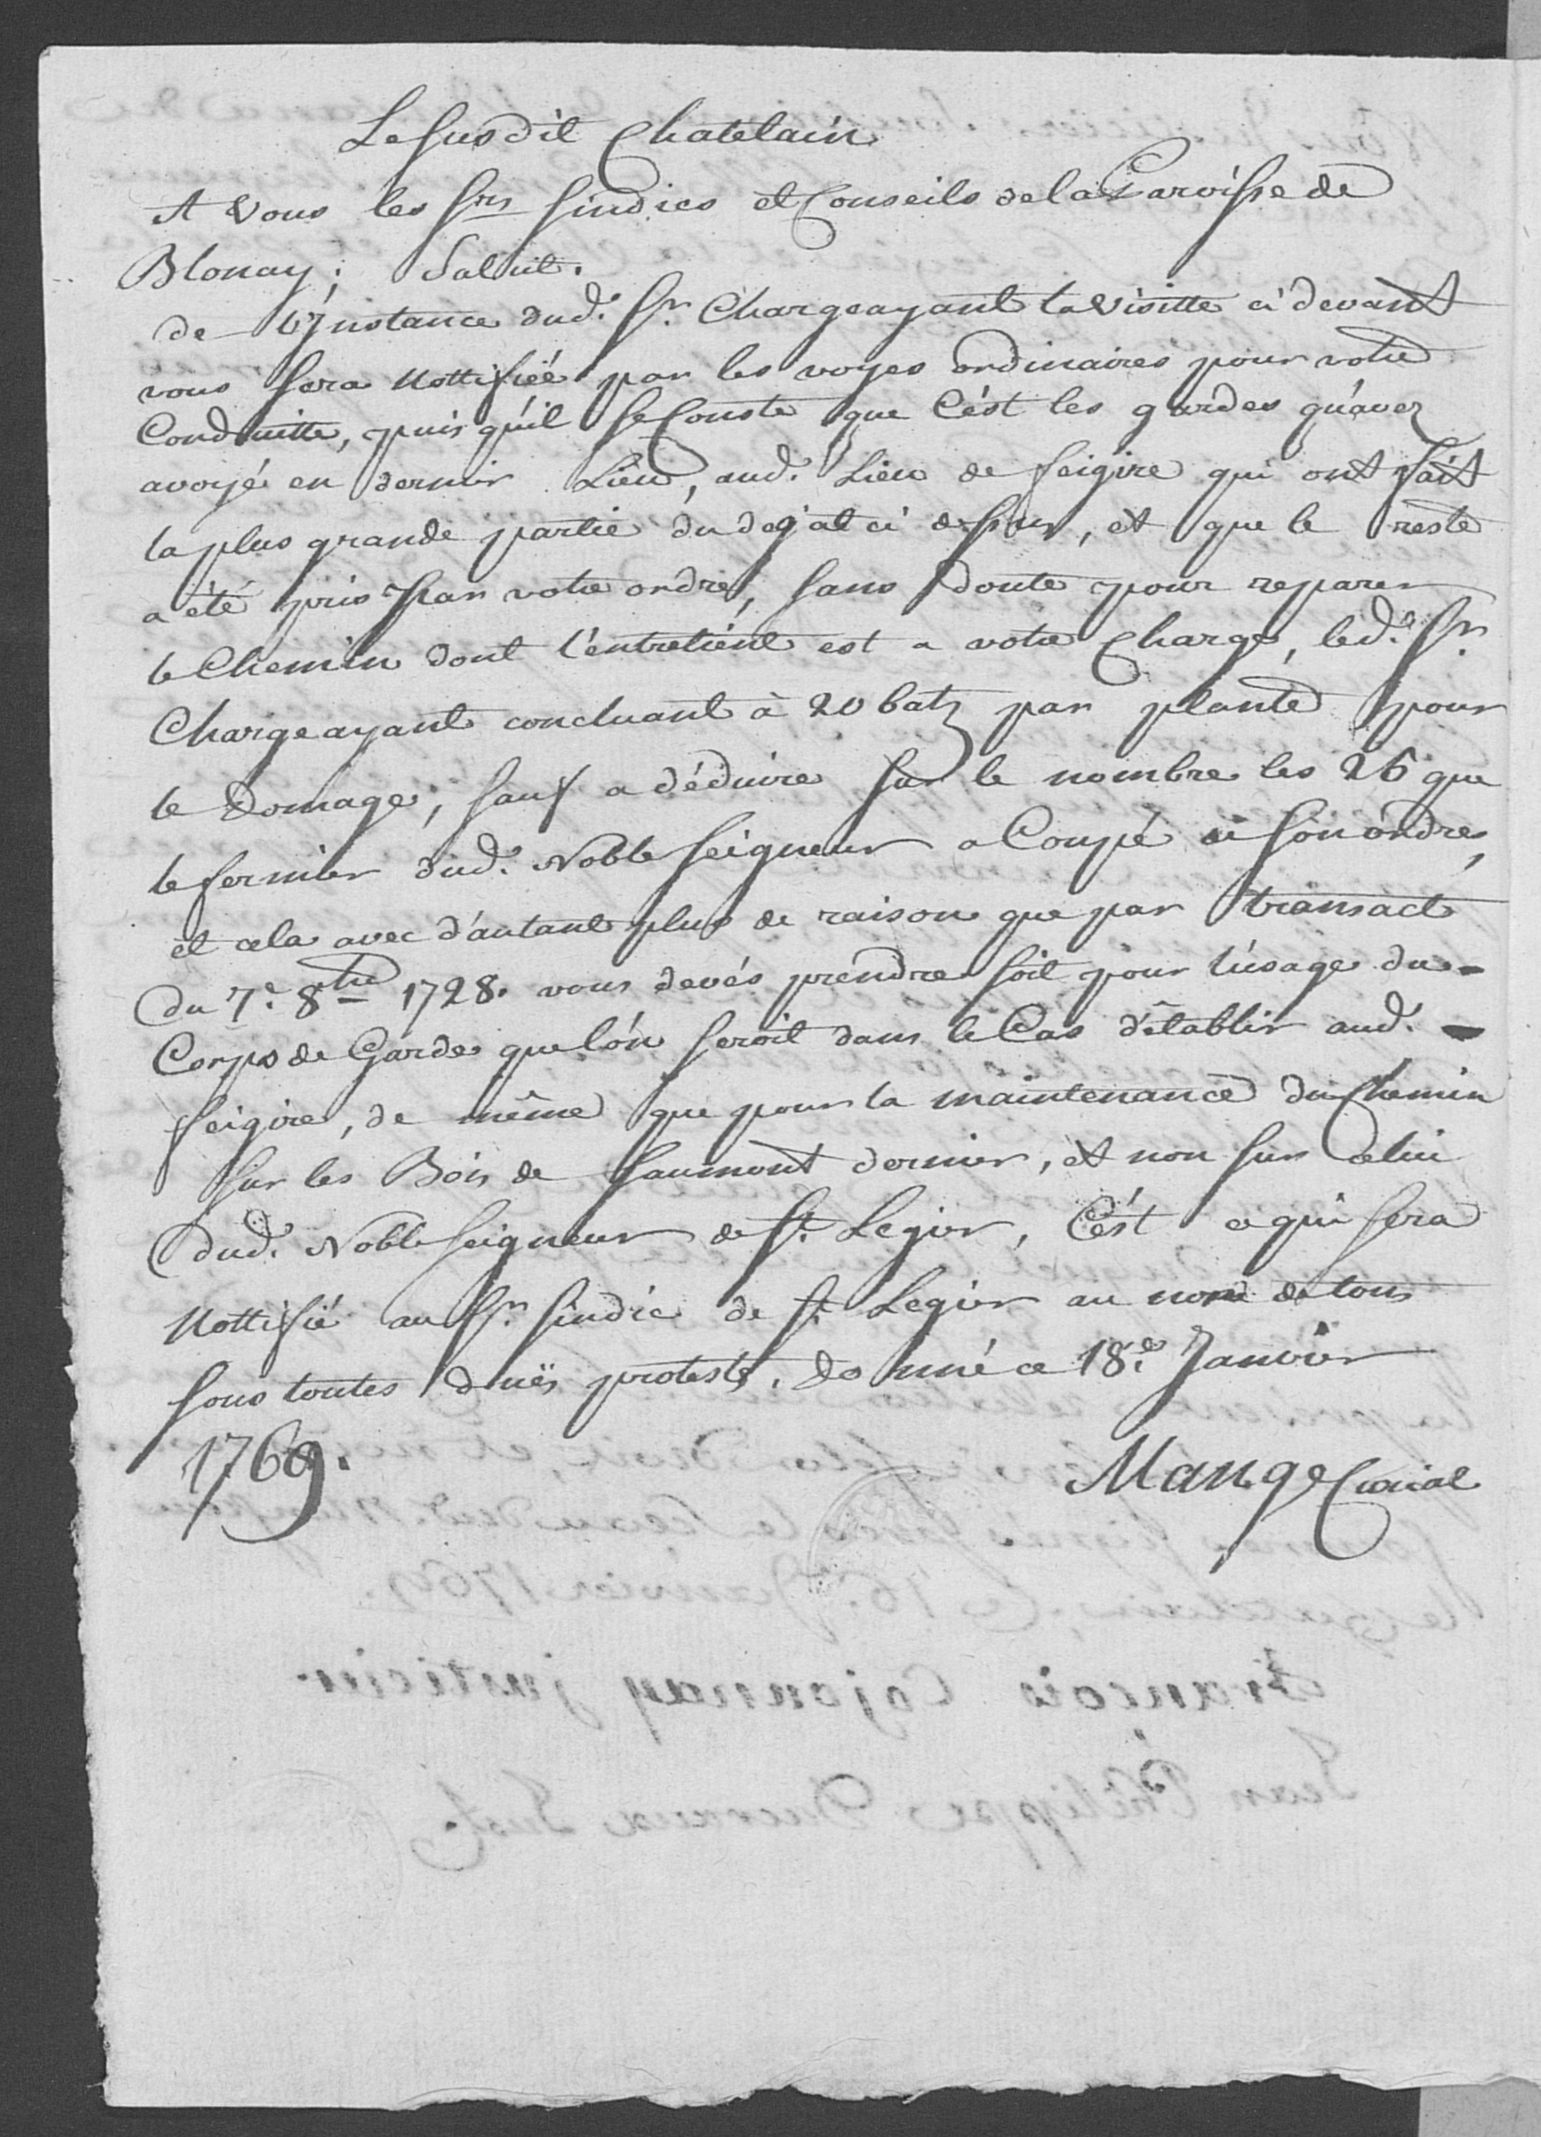 Le susdit Chatelain
A Vous les Srs Sindics et Conseils de la Paroisse de
Blonay; Salut.
de l'Instance dud. Sr. Chargeayant la Visitte ci devant
vous sera Nottifiée par les voyes ordinaires pour votre
Conduitte, puis qu'il se Conste que C'ést les gardes qu'avez
avoyé en dernier Lieu, aud. Lieu de feigire qui ont fait
la plus grande partie du degat ci dessus, et que le reste
a été pris par votre ordre, sans doute pour reparer
le Chemin dont l'entretient est a votre Charge, led. Sr.
Chargeayant concluant à 20 batz par plante pour
le Domage; sauf a déduire sur le nombre les 26 que
le fermier dud. Noble Seigneur a Coupé à son ordre,
et cela avec d'autant plus de raison que par transact
du 7e. 8bre 1728. vous devés prendre soit pour l'usage du
Corps de Garde que l'on seroit dans le Cas d'établir aud.
feigire, de même que pour la maintenance du Chemin
sur les Bois de Saumont dernier, et non sur celui
dud. Noble Seigneur de St. Legier, C'ést ce qui sera
Nottifié au Sr. Sindic de St. Legier au nom de tous
sous toutes duës protests. Donné ce 18e. Janvier
1769.
Mange Curial